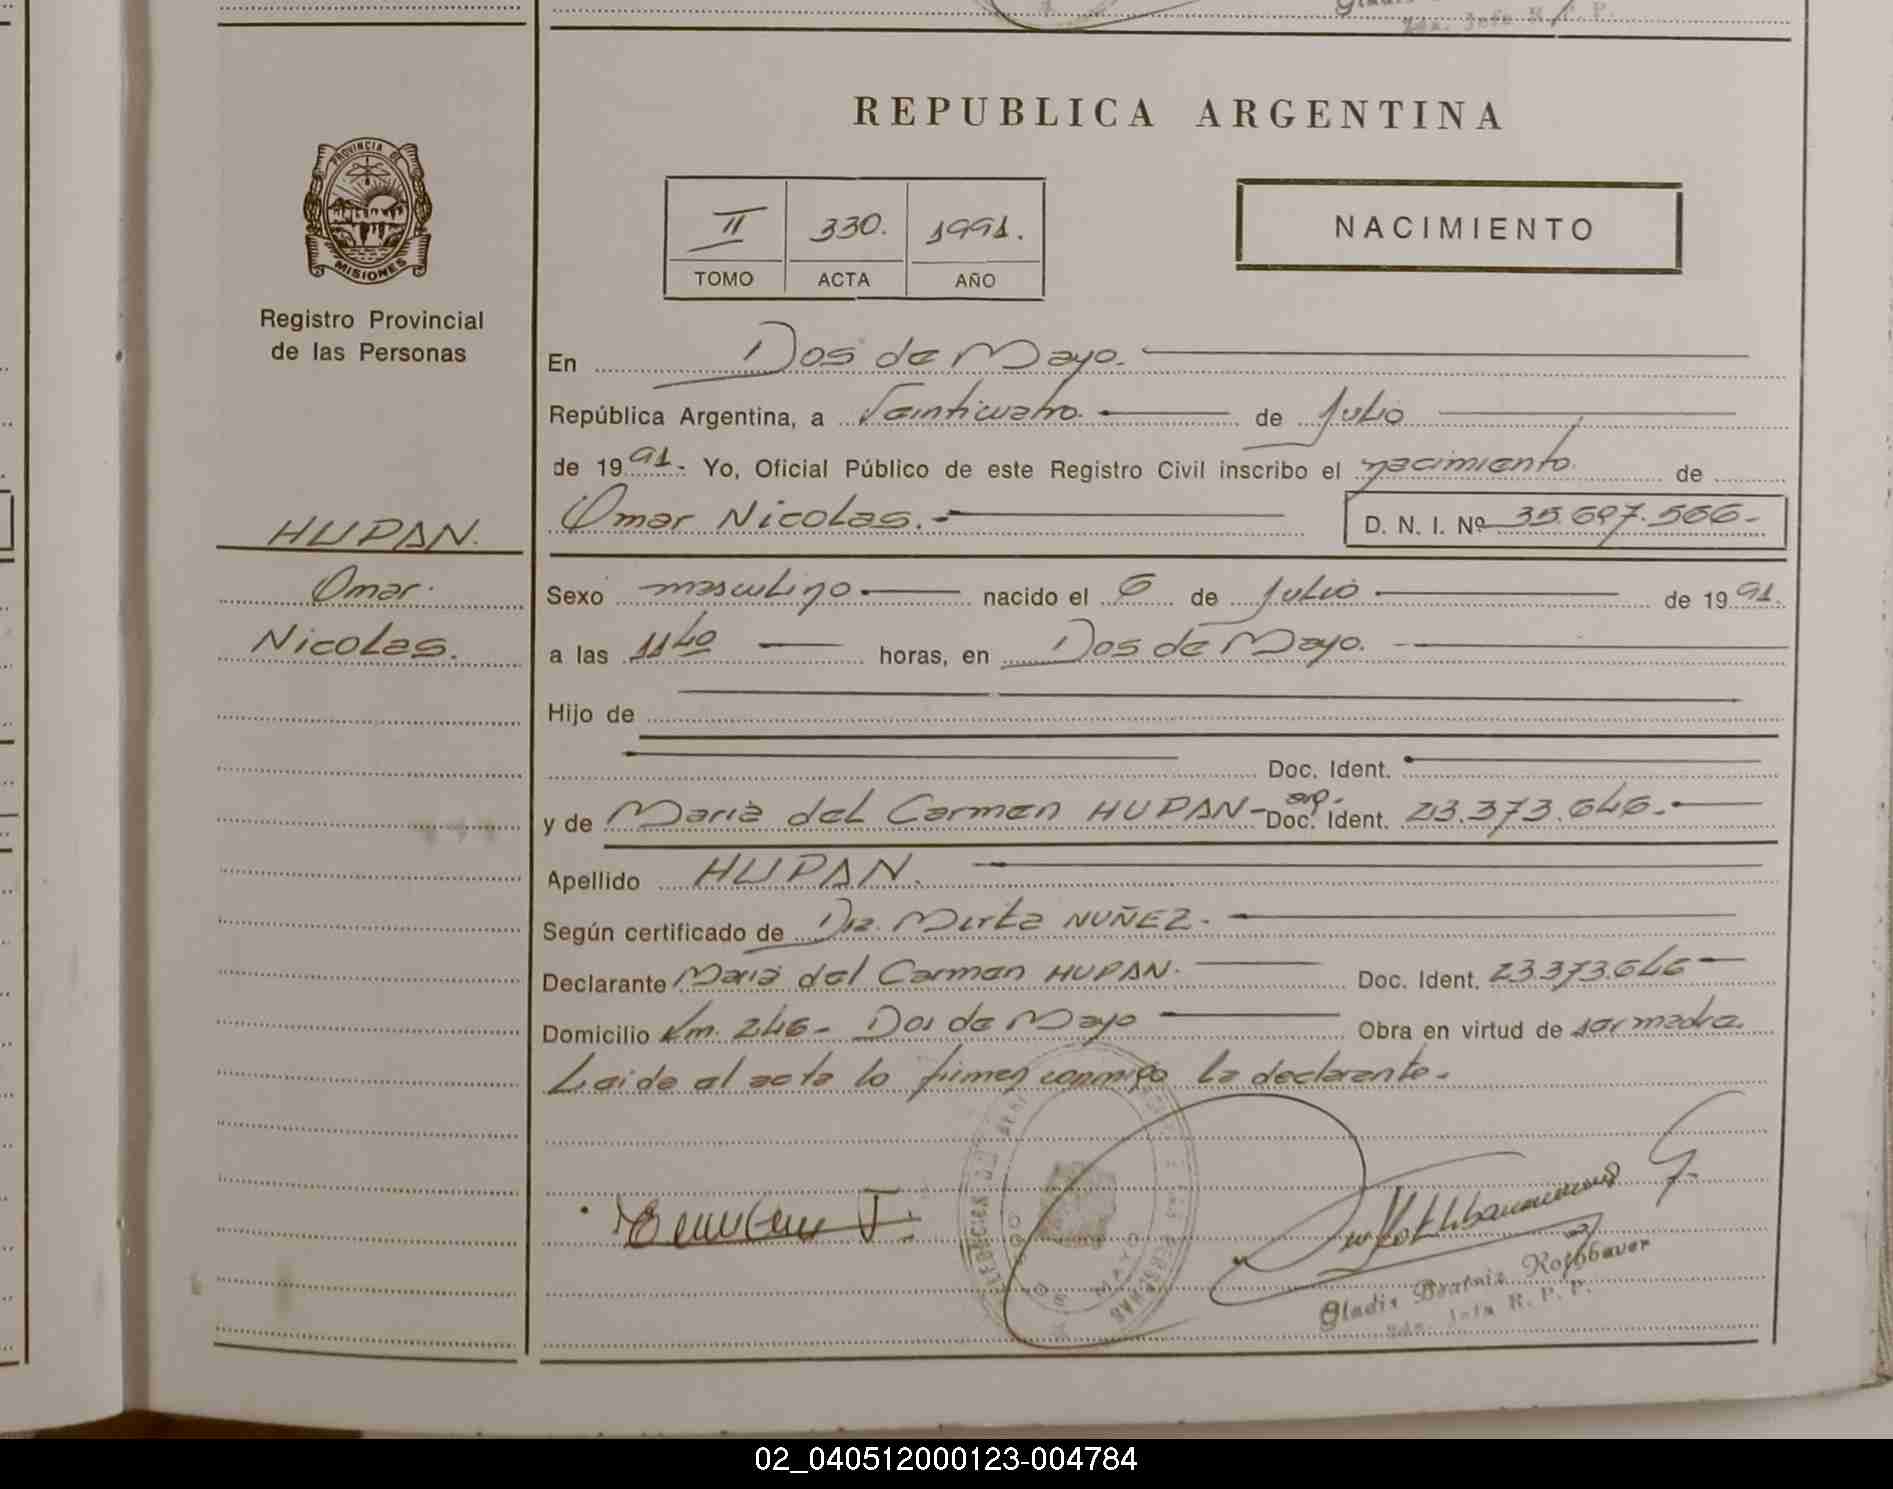 REPUBLICA ARGENTINA
PROVINCIA DE
MISIONES
Registro Provincial
de las Personas
II 330. 1991.
TOMO ACTA AÑO
NACIMIENTO
En Dos de Mayo.
República Argentina, a Veinticuatro. de Julio
de 1991.- Yo, Oficial Público de este Registro Civil inscribo el nacimiento. de
Omar Nicolas.- D. N. I. Nº 35.697.566-
HUPAN.
Omar.
Nicolas.
Sexo masculino. nacido el 6 de Julio de 1991.
a las 11 40 horas, en Dos de Mayo.
Hijo de
Doc. Ident.
y de Maria del Carmen HUPAN- arg. Doc. Ident. 23.373.646.-
Apellido HUPAN.
Según certificado de Dra. Mirta NUÑEZ.
Declarante Maria del Carmen HUPAN. Doc. Ident. 23.373.646
Domicilio Km. 246- Dos de Mayo Obra en virtud de ser madre.
Leida el acta lo firmen conmigo la declarante.
DOS DE MAYO
Gladis Beatriz Rothbauer
Jefa R. P. P.
02_040512000123-004784